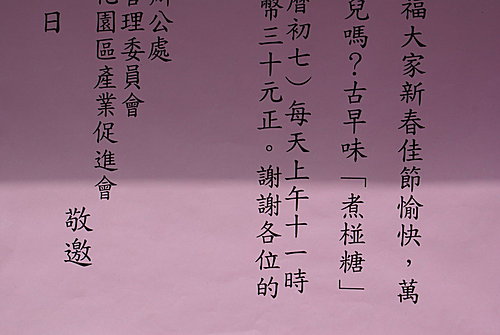 福大家新春佳節愉快，萬
兒嗎？古早味「煮椪糖」
曆初七）每天上午十一時
幣三十元正。謝謝各位的
公處
管理委員會
花園區產業促進會
敬邀
日